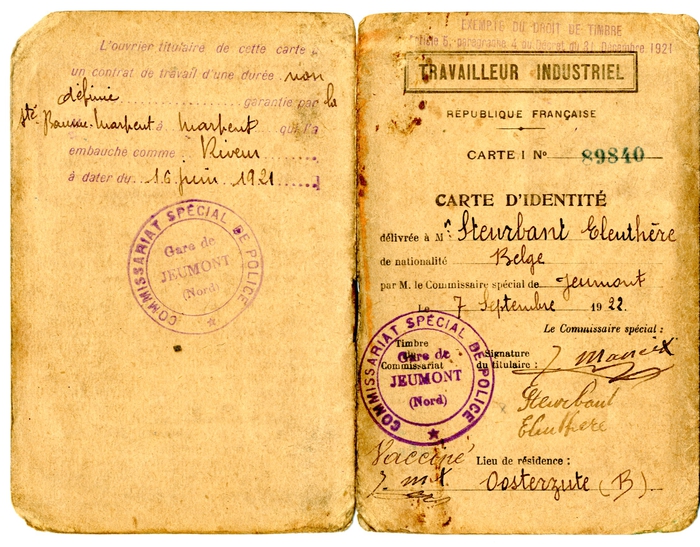 L'ouvrier titulaire de cette carte a
un contrat de travail d'une durée non
définie garantie par la
Sté Baume-Marpent à Marpent qui l'a
embauché comme : Riveur
à dater du 16 juin 1921
COMMISSARIAT SPÉCIAL DE POLICE
Gare de
JEUMONT
(Nord)
EXEMPTE DU DROIT DE TIMBRE
Article 6, paragraphe 4 du Décret du 31 Décembre 1921
TRAVAILLEUR INDUSTRIEL
RÉPUBLIQUE FRANÇAISE
CARTE I No 89840
CARTE D'IDENTITÉ
délivrée à Mr Steurbant Eleuthère
de nationalité Belge
par M. le Commissaire spécial de Jeumont
Le 7 Septembre 1922.
Le Commissaire spécial :
Timbre
du
Commissariat
Signature
du titulaire :
COMMISSARIAT SPÉCIAL DE POLICE
Gare de
JEUMONT
(Nord)
Steurbaut
Eleuthere
Vacciné
Lieu de résidence :
Oosterzute (B)